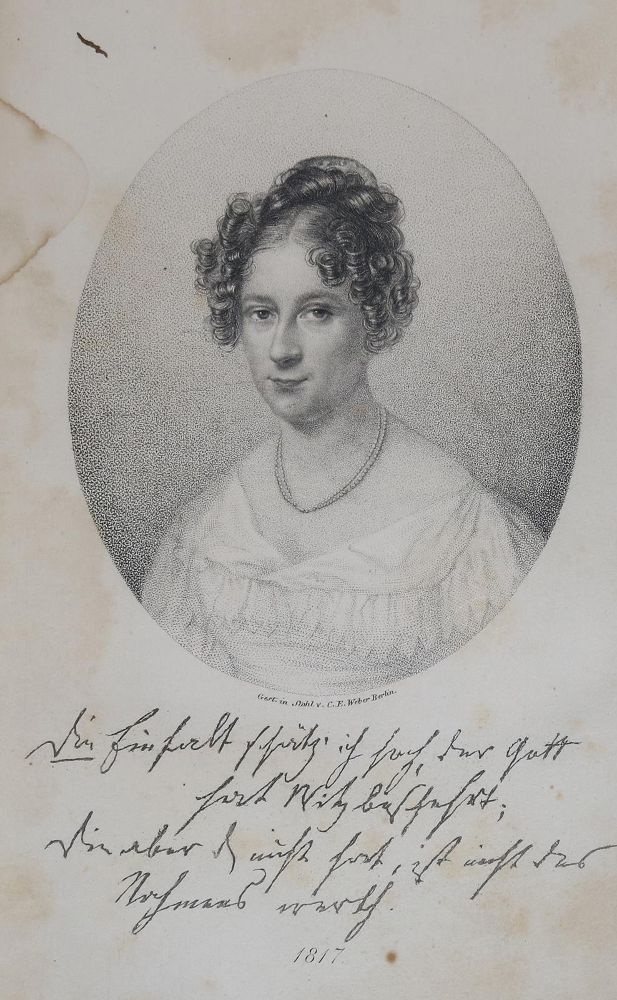 Gest. in Stahl v. C. E. Weber Berlin.
Die Einfalt schätz' ich hoch, der Gott
hat Witz beschehrt;
Die aber dß nicht hat, ist nicht des
Nahmens werth.
1817.